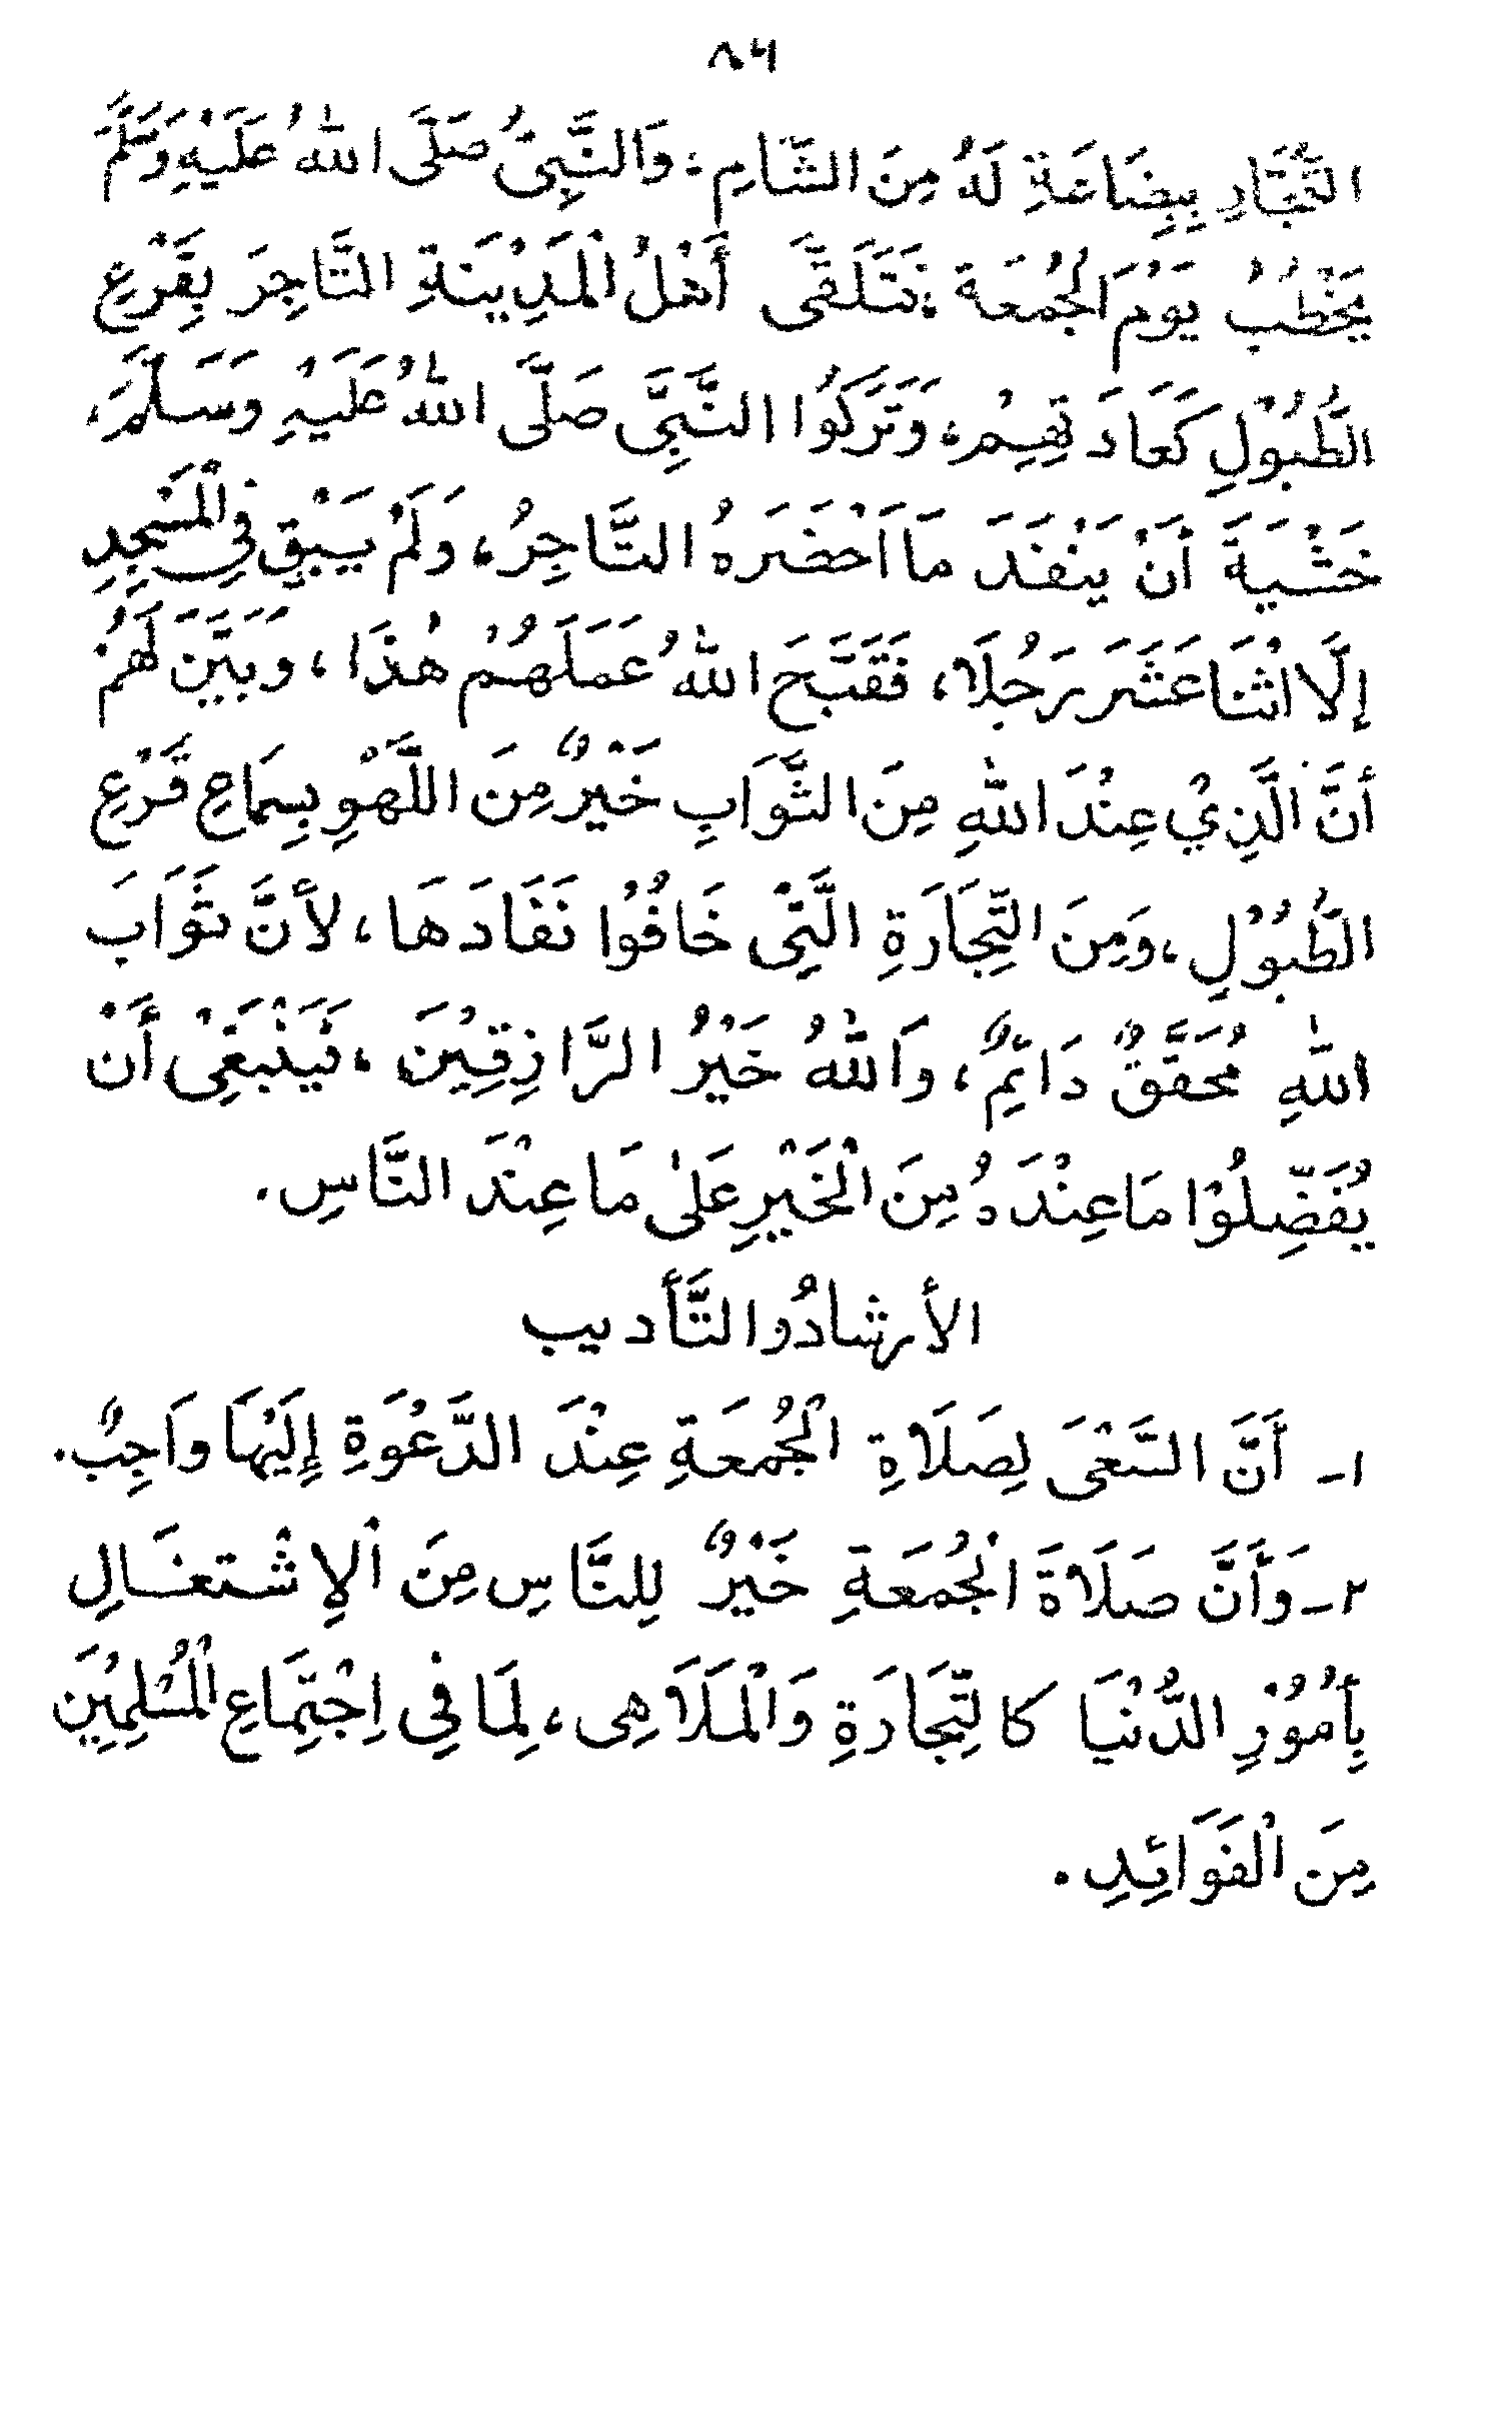 ٨٦
التُّجَّارِ بِبِضَاعَةٍ لَهُ مِنَ الشَّامِ: وَالنَّبِيُّ صَلَّى اللهُ عَلَيْهِ وَسَلَّمَ
يَخْطُبُ يَوْمَ الْجُمُعَةِ، فَتَلَقَّى أَهْلُ الْمَدِيْنَةِ التَّاجِرَ بِقَرْعِ
الطُّبُوْلِ كَعَادَتِهِمْ، وَتَرَكُوا النَّبِيَّ صَلَّى اللهُ عَلَيْهِ وَسَلَّمَ،
خَشْيَةَ أَنْ يَنْفَدَ مَا اَحْضَرَهُ التَّاجِرُ، وَلَمْ يَبْقِ فِي الْمَسْجِدِ
إِلَّا اثْنَا عَشَرَ رَجُلًا، فَقَبَّحَ اللهُ عَمَلَهُمْ هٰذَا، وَبَيَّنَ لَهُمْ
أَنَّ الَّذِيْ عِنْدَ اللهِ مِنَ الثَّوَابِ خَيْرٌ مِنَ اللَّهْوِ بِسِمَاعِ قَرْعِ
الطُّبُوْلِ، وَمِنَ التِّجَارَةِ الَّتِيْ خَافُوْا نَفَادَهَا، لأَنَّ ثَوَابَ
اللهِ مُحَقَّقٌ دَائِمٌ، وَاللهُ خَيْرُ الرَّازِقِيْنَ، فَيَنْبَغِيْ أَنْ
يُفَضِّلُوْا مَا عِنْدَهُ مِنَ الْخَيْرِ عَلٰى مَا عِنْدَ النَّاسِ.
الأرشادُ والتَّأديب
١- أَنَّ السَّعْيَ لِصَلَاةِ الْجُمُعَةِ عِنْدَ الدَّعْوَةِ إِلَيْهَا وَاجِبٌ.
٢- وَأَنَّ صَلَاةَ الْجُمُعَةِ خَيْرٌ لِلنَّاسِ مِنَ الْاِشْتغَالِ
بِأُمُوْرِ الدُّنْيَا كالتِّجَارَةِ وَالْمَلَاهِى، لِمَا فِي اِجْتِمَاعِ الْمُسْلِمِيْنَ
مِنَ الْفَوَائِدِ.